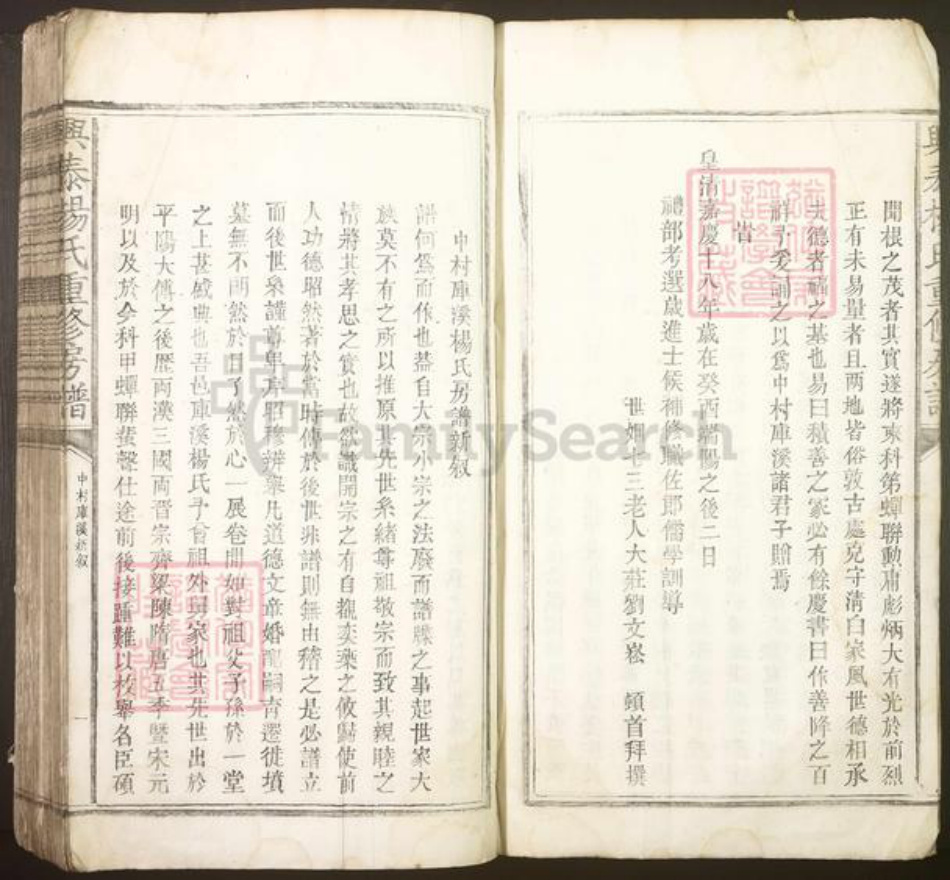 聞根之茂者其實遂將來科第蟬聯勳庸彪炳大有光於前烈
正有未易量者且兩地皆俗敦古處克守清白家風世德相承
夫德者福之基也易曰積善之家必有餘慶書曰作善降之百
祥予爰詞之以爲中村庫溪諸君子贈焉
皇清嘉慶十八年歲在癸酉端陽之後二日
禮部考選歲進士候補修職佐郎儒學訓導
世姻七三老人大莊劉文崧 頓首拜撰
興泰楊氏重修房譜
中村庫溪楊氏房譜新叙
譜何爲而作也蓋自大宗小宗之法廢而譜牒之事起世家大
族莫不有之所以推原其先世系緒尊祖敬宗而致其親睦之
情將其孝思之實也故欲識開宗之有自觀奕葉之攸歸使前
人功德昭然著於當時傳於後世非譜則無由稽之是必譜立
而後世系謹尊卑序昭穆辨舉凡道德文章婚配嗣育遷徙墳
墓無不朗然於目了然於心一展卷間如對祖父子孫於一堂
之上甚盛典也吾邑庫溪楊氏予曾祖外舅家也其先世出於
平陽大傅之後歷兩漢三國兩晋宗齊梁陳隋唐五季暨宋元
明以及於今科甲蟬聯蜚聲仕途前後接踵難以枚舉名臣碩
興泰楊氏重修房譜
中村庫溪新叙
一
FamilySearch